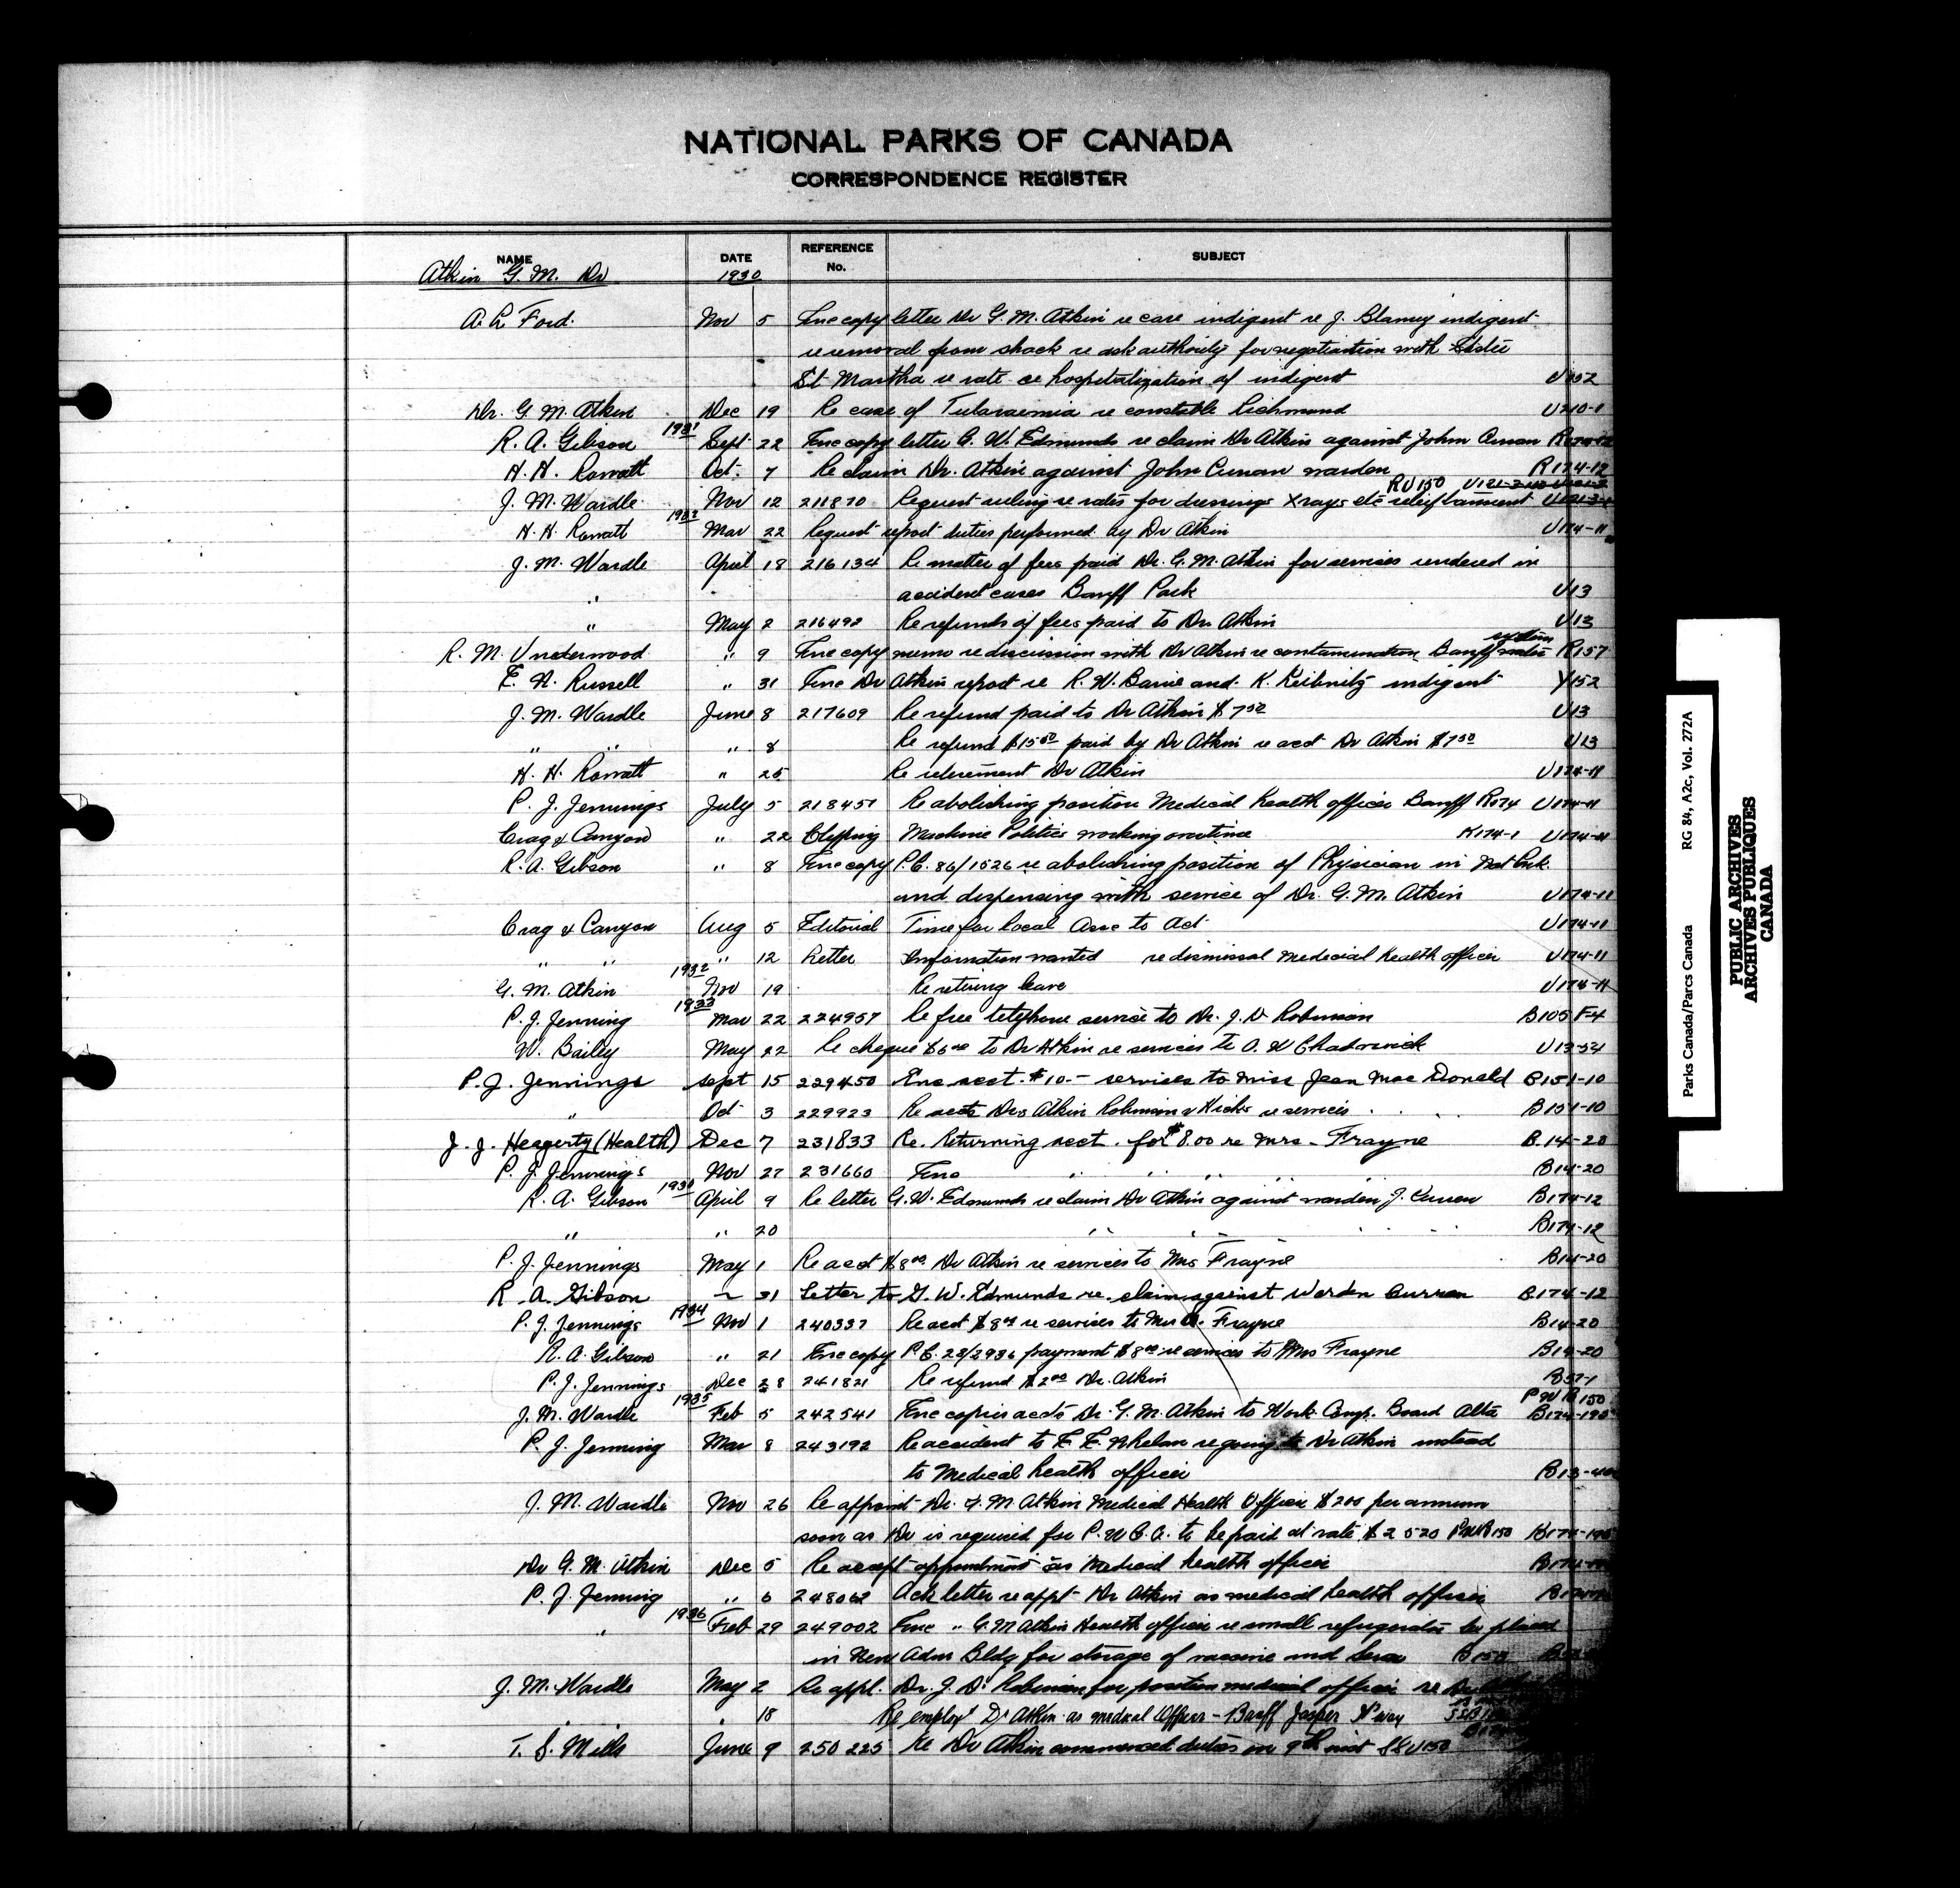 NATIONAL PARKS OF CANADA
CORRESPONDENCE REGISTER
NAME DATE REFERENCE No. SUBJECT
Atkin G. M. Dr 1930
A. L. Ford. Nov 5 Enc copy letter Dr G. M. Atkin re care indigent re J. Blamey indigent
re removal from shack re ask authority for negotiation with Sister
St Martha re rate re hospitalization of indigent U152
Dr. G M. Atkin Dec 19 Re case of Tularaemia re constable Richmond U210-1
R. A. Gibson 1931 Sept 22 Enc copy letter G. W. Edmunds re claim Dr Atkin against John Curran R174-12
H. H. Rowatt Oct. 7 Re claim Dr. Atkin against John Curran warden R174-12
RU150
J. M. Wardle Nov 12 211870 Request ruling re rates for dressings X rays etc relief
H. H. Rowatt 1932 Mar 22 Request report duties performed by Dr Atkin U174-11
J. M. Wardle April 18 216134 Re matter of fees paid Dr. G. M. Atkin for services rendered in
" accident cases Banff Park U13
" May 2 216492 Re refunds of fees paid to Dr. Atkin U13
system
R. M. Underwood " 9 Enc copy memo re discussion with Dr Atkin re contamination Banff water R157
E. N. Russell " 31 Enc Dr Atkin report re R. W. Barrie and K. Leibnitz indigent Y152
J. M. Wardle June 8 217609 Re refund paid to Dr Atkin $7.50 U13
" " " 8 Re refund $15.00 paid by Dr Atkin re acct Dr Atkin $7.50 U13
H. H. Rowatt " 25 Re retirement Dr Atkin U174-11
P. J. Jennings July 5 218451 Re abolishing position Medical health officer Banff R174 U174-11
Crag & Canyon " 22 Clipping Machine Politics working overtime K174-1 U174-11
R. A. Gibson " 8 Enc copy P.C. 86/1526 re abolishing position of Physician in Nat Park
and dispensing with service of Dr. G. M. Atkin U174-11
Crag & Canyon Aug 5 Editorial Time for local Assc to Act U174-11
" " " 12 Letter Information wanted re dismissal medecial health officer U174-11
G. M. Atkin 1932 Nov 19 Re retiring leave U174-11
P. J. Jenning 1933 Mar 22 224957 Re free telephone service to Dr. J. D. Robinson B105 F-4
W. Bailey May 22 Re cheque $6.00 to Dr Atkin re services to O. W Chadwick U13-54
P. J. Jennings Sept 15 229450 Enc acct. $10.- services to Miss Jean Mac Donald B151-10
" Oct 3 229923 Re accts Drs Atkin Robinson & Hicks re services B151-10
J. J. Heagerty (Health) Dec 7 231833 Re. Returning acct. for $8.00 re Mrs - Frayne B.14-20
P. J. Jennings Nov 27 231660 Enc " " " B14-20
R. A. Gibson April 9 Re letter G. W. Edmunds re claim Dr Atkin against warden J. Curren B174-12
" " 20 " " B174-12
P. J. Jennings May 1 Re acct $8.00 Dr Atkin re services to Mrs Frayne B14-20
R. A. Gibson " 31 Letter to G. W. Edmunds re. claim against Warden Curran B.174-12
P. J. Jennings 1934 Nov 1 240337 Re acct $8.00 re services to Mrs Frayne B14-20
R. A. Gibson " 21 Enc copy P.C. 28/2936 payment $8.00 re services to Mrs Frayne B14-20
P. J. Jennings Dec 28 241821 Re refund $2.00 Dr. Atkin B57-1
PWB150
J. M. Wardle 1935 Feb 5 242541 Enc copies accts Dr. G. M. Atkin to Work. Comp. Board Alta
P. J. Jenning Mar 8 243192 Re accident to E. E. Whelan re going to Dr Atkin instead
to Medical health officer
J. M. Wardle Nov 26 Re appoint Dr. G. M Atkin Medical Health Officer $200 per annum
soon as Dr is required for P.W.C.A. to be paid at rate $2520 PWB150
Dr G. M. Atkin Dec 5 Re accept appointment as Medical health officer
P. J. Jenning " 6 248062 Ack letter re appt Dr Atkin as medical health officer
" 1936 Feb 29 249002 Enc " G. M Atkin Health officer re small refrigerator be placed
in New Adm Bldg for storage of vaccine and Sera B150
J. M. Wardle May 2 Re appl. Dr. J. D. Robinson for position medical officer re
" 18 Re employ't Dr Atkin as medical Officer - Banff Jasper H'way
T. S. Mills June 9 250225 Re Dr Atkin commenced duties on 9th inst
Parks Canada/Parcs Canada RG 84, A2c, Vol. 272A
PUBLIC ARCHIVES
ARCHIVES PUBLIQUES
CANADA